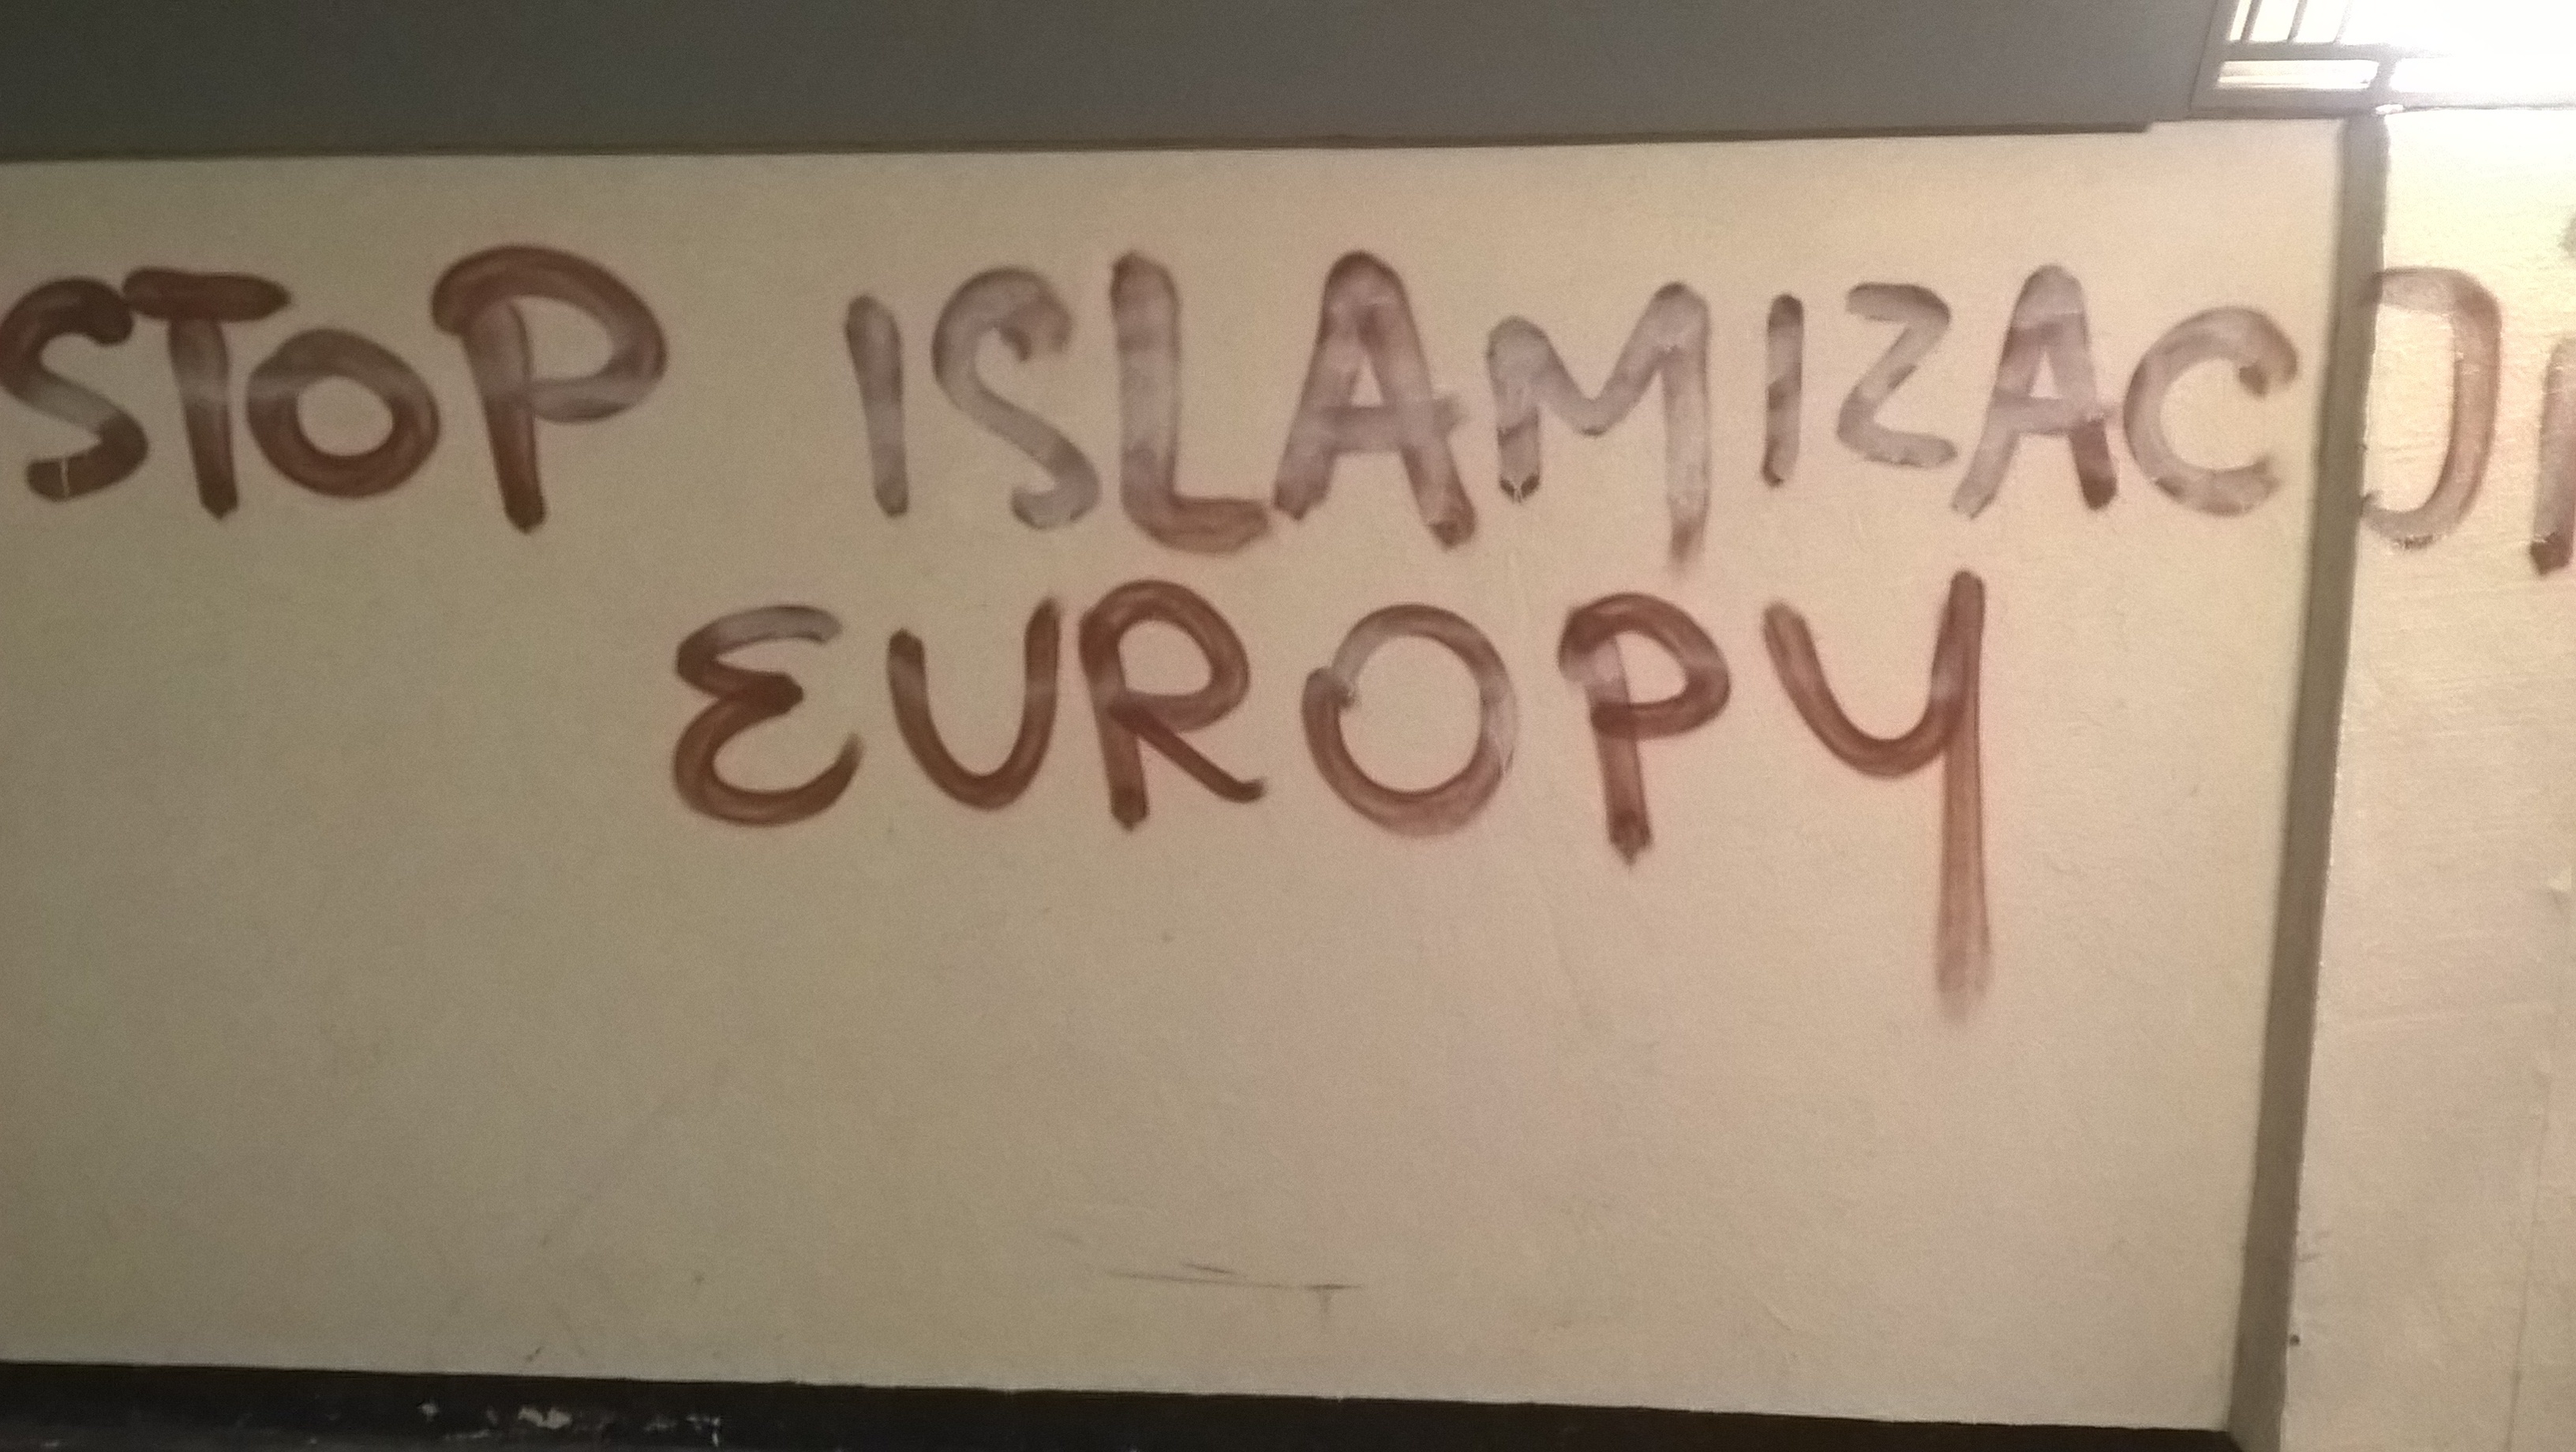 STOP ISLAMIZACJI
EUROPY